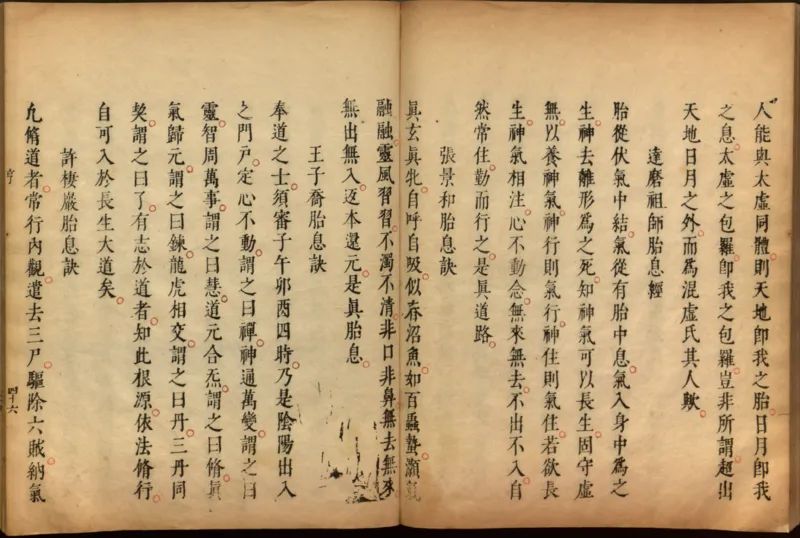 人能與太虛同體則天地卽我之胎日月卽我
之息太虛之包羅卽我之包羅豈非所謂超出
天地日月之外而爲混虛氏其人歟
達磨祖師胎息經
胎從伏氣中結氣從有胎中息氣入身中爲之
生神去離形爲之死知神氣可以長生固守虛
無以養神氣神行則氣行神住則氣住若欲長
生神氣相注心不動念無來無去不出不入自
然常住勤而行之是眞道路
張景和胎息訣
眞玄眞牝自呼自吸似春沼魚如百蟲蟄灝氣
融融靈風習習不濁不清非口非鼻無去無來
無出無入返本還元是眞胎息
王子喬胎息訣
奉道之士須審子午卯酉四時乃是陰陽出入
之門戸定心不動謂之曰禪神通萬變謂之曰
靈智周萬事謂之曰慧道元合炁謂之曰脩眞
氣歸元謂之曰鍊龍虎相交謂之曰丹三丹同
契謂之曰了有志於道者知此根源依法脩行
自可入於長生大道矣
許棲巖胎息訣
凢脩道者常行內觀遣去三尸驅除六賊納氣
亨
四十六